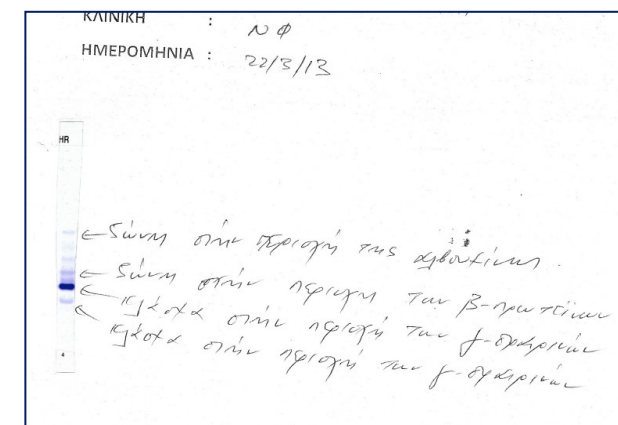 ΚΛΙΝΙΚΗ : ΝΦ
ΗΜΕΡΟΜΗΝΙΑ : 22/3/13
HR
ζώνη στην περιοχή της αλβουμίνης.
ζώνη στην περιοχή των β-πρωτεϊνών
κλάσμα στην περιοχή των γ-σφαιρινών
κλάσμα στην περιοχή των γ-σφαιρινών
4